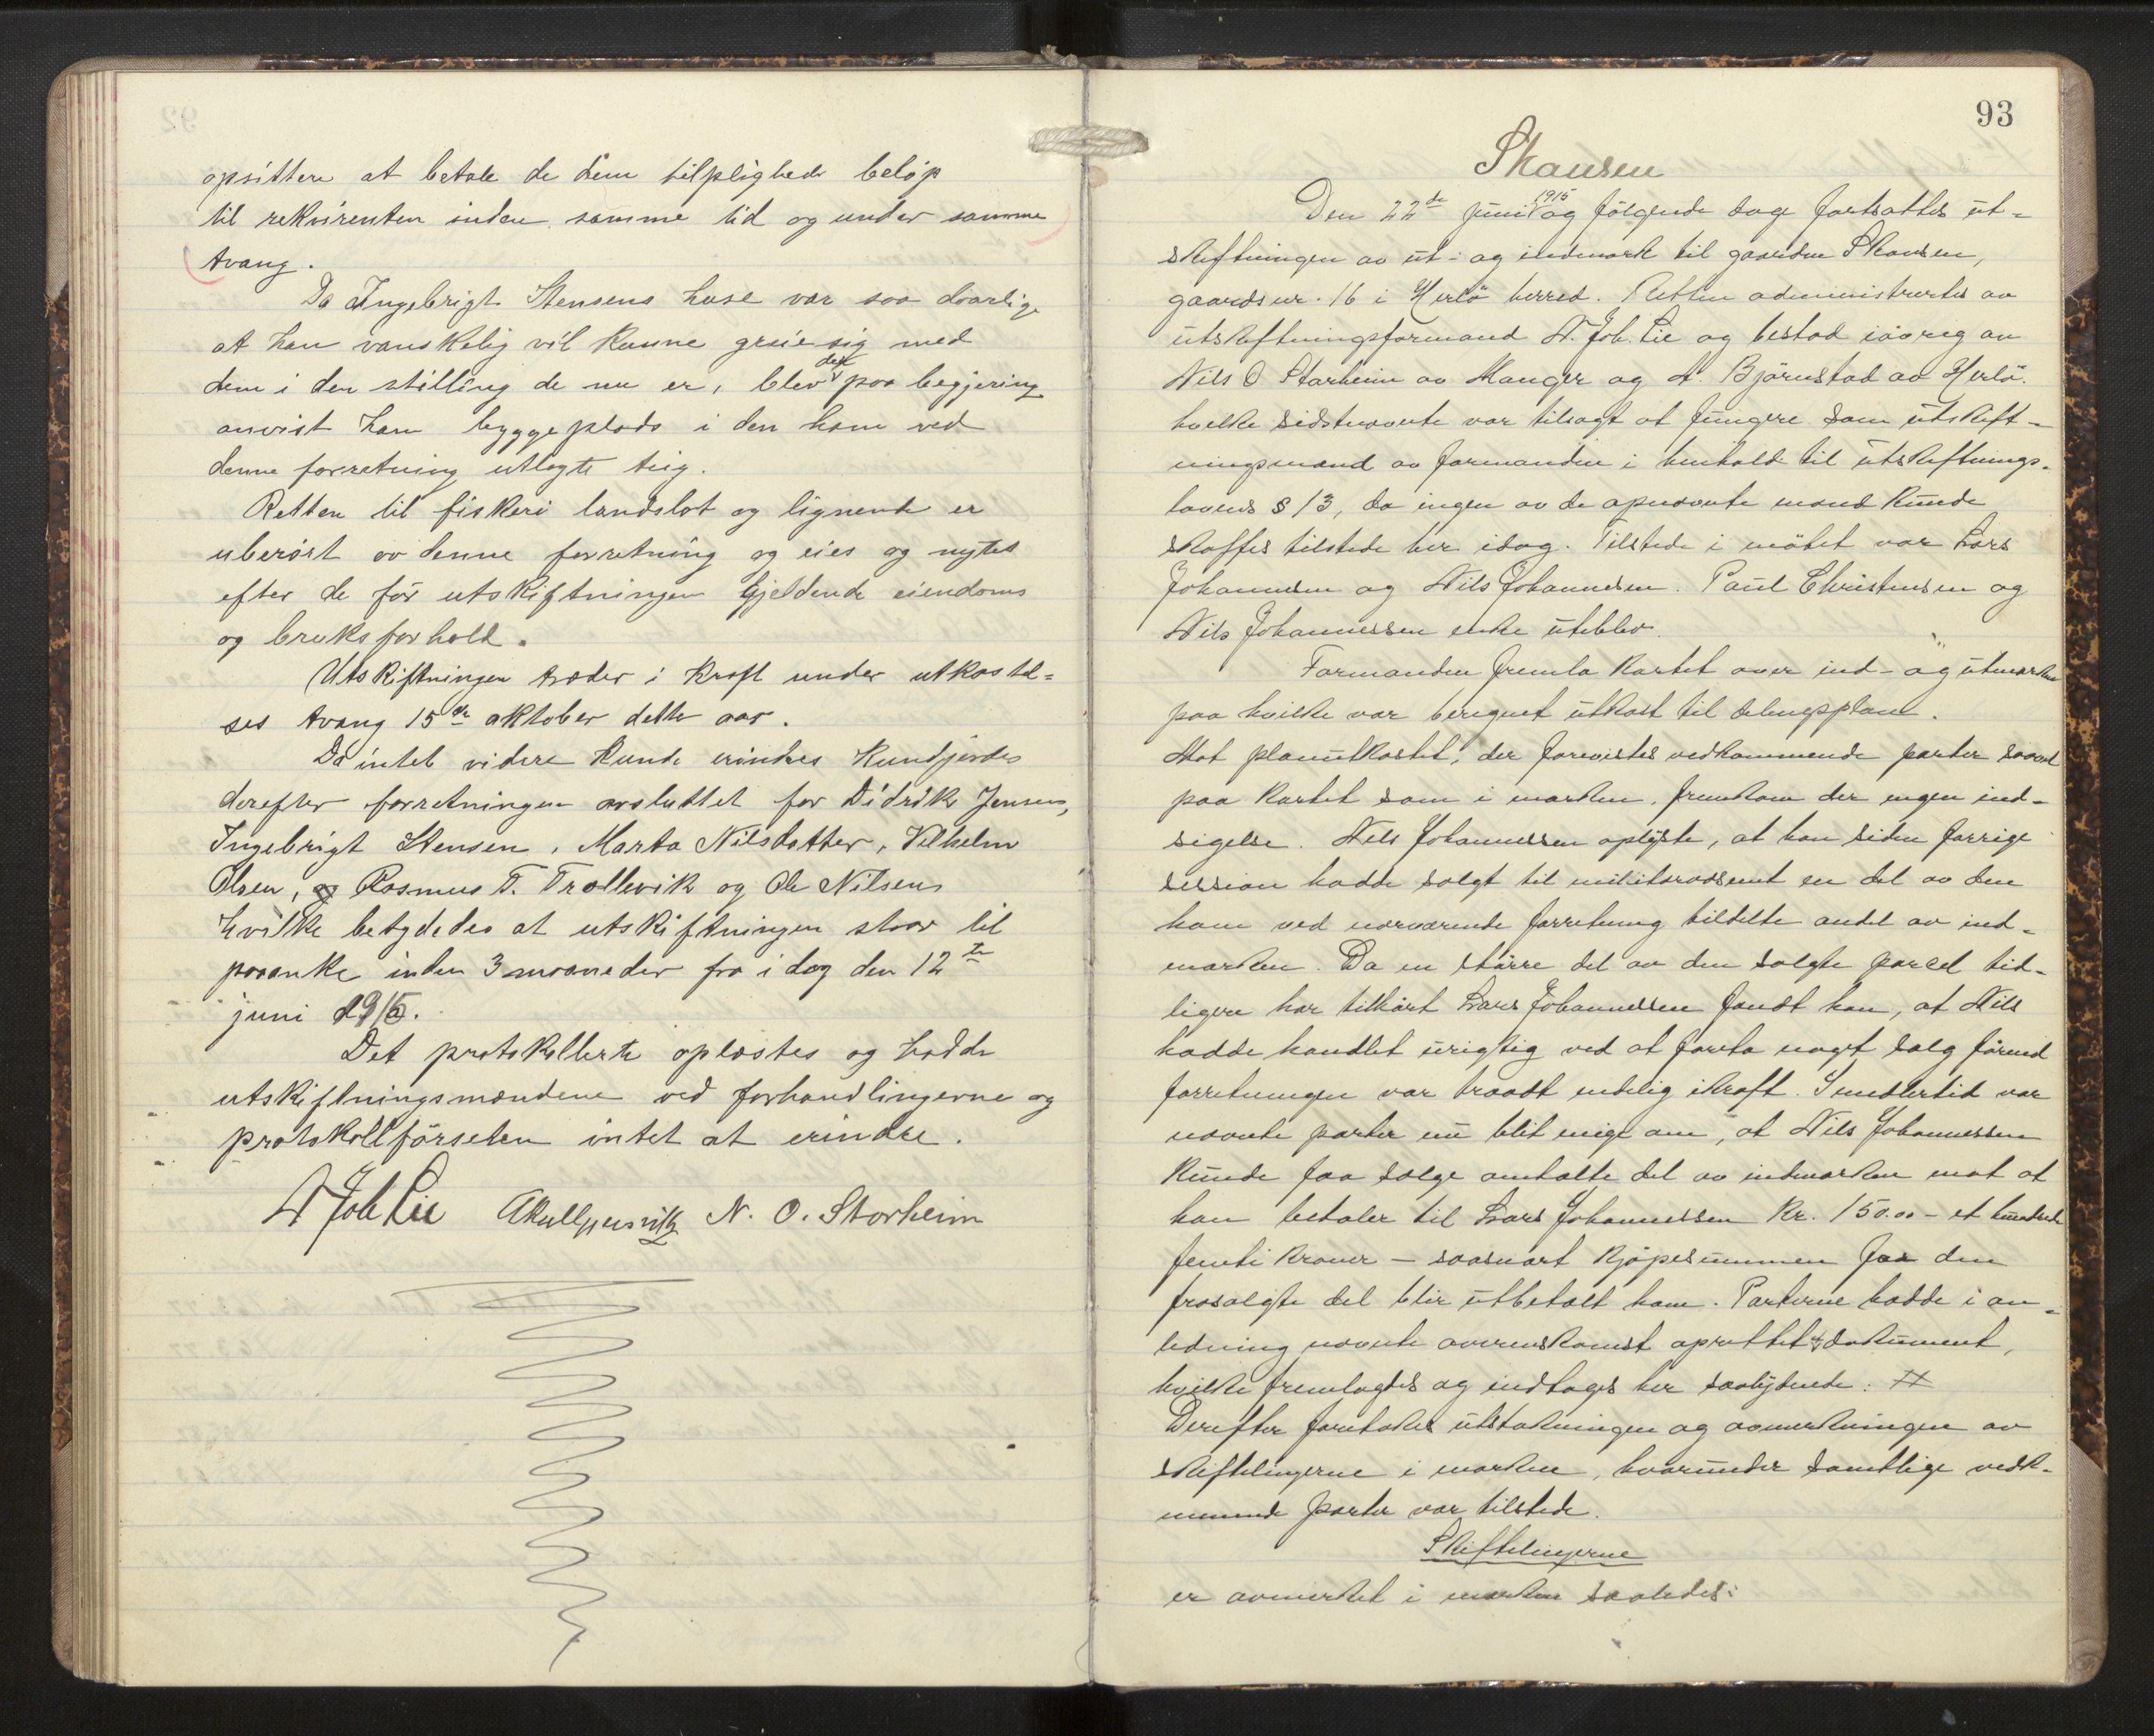 opsittere at betale de dem tilplighede beløp
til rekvirenten inden samme tid og under samme
tvang.
Da Ingebrigt Stensens huse var saa daarlige
at han vanskelig vil kunne greie sig med
dem i den stilling de nu er, blev der paa begjering
anvist ham byggeplads i den ham ved
denne forretning utlagte teig.
Retten til fiskeri landslot og lignende er
uberørt av denne forretning og eies og nytes
efter de før utskiftningen gjeldende eiendoms
og bruksforhold.
Utskiftningen træder i kraft under utkastel=
ses tvang 15de oktober dette aar.
Da intet videre kunde erindres kundgjordes
derefter forretningen avsluttet for Didrik Jensen,
Ingebrigt Stensen, Marta Nilsdatter, Vilhelm
Olsen, og Rasmus T. Trollevik og Ole Nilsen
hvilke betydedes at utskiftningen staar til
paaanke inden 3 maaneder fra i dag den 12te
juni 1915.
Det protokollerte oplæstes og hadde
utskiftningsmændene ved forhandlingerne og
protokollførselen intet at erindre.
A Joh Lie N. O. Storheim
93
Skansen
Den 22de juni 1915 og følgende dage fortsattes ut-
skiftningen av ut- og indmark til gaarden Skansen,
gaardsnr. 16 i Herlö herred. Retten administrertes av
utskiftningsformand A. Joh. Lie og bestod iøvrig av
Nils O Storheim av Manger og A. Björnstad av Herlö.
hvilke sidstnævnte var tilsagt at fungere som utskift-
ningsmand av formanden i henhold til utskiftnings-
lovens § 13, da ingen av de opnævnte mænd kunde
skaffes tilstede her idag. Tilstede i mötet var Lars
Johannesen og Nils Johannesen. Paul Christensen og
Nils Johannessen enke uteblev.
Formanden fremla kartet over ind- og utmarken
paa hvilke var beregnet utkast til delingsplan.
Mot planutkastet, der forevistes vedkommende parter saavel
paa kartet som i marken, fremkom der ingen ind-
sigelse. Nils Johannessen oplyste, at han siden forrige
session hadde solgt til militærvæsenet en del av den
ham ved nærværende forretning tildelte andel av ind-
marken. Da en større del av den solgte parcel tid-
ligere har tilhørt Lars Johannessen fandt han, at Nils
hadde handlet urigtig ved at foreta noget salg førend
forretningen var traadt endelig ikraft. Imidlertid var
nævnte parter nu blit enige om, at Nils Johannessen
kunde faa sælge omtalte del av indmarken mot at
han betaler til Lars Johannessen Kr. 150.00 - et hundrede
femti kroner - saasnart kjøpesummen for den
frasolgte del blir utbetalt ham. Parterne hadde i an-
ledning nævnte overenskomst oprettet et dokument,
hvilke fremlagdes og indtages her saalydende: #
Derefter foretokes utstakningen og avmerkningen av
skiftelinjerne i marken, hvorunder samtlige vedk-
mmende parter var tilstede.
Skiftelinjerne
er avmerket i marken saaledes: